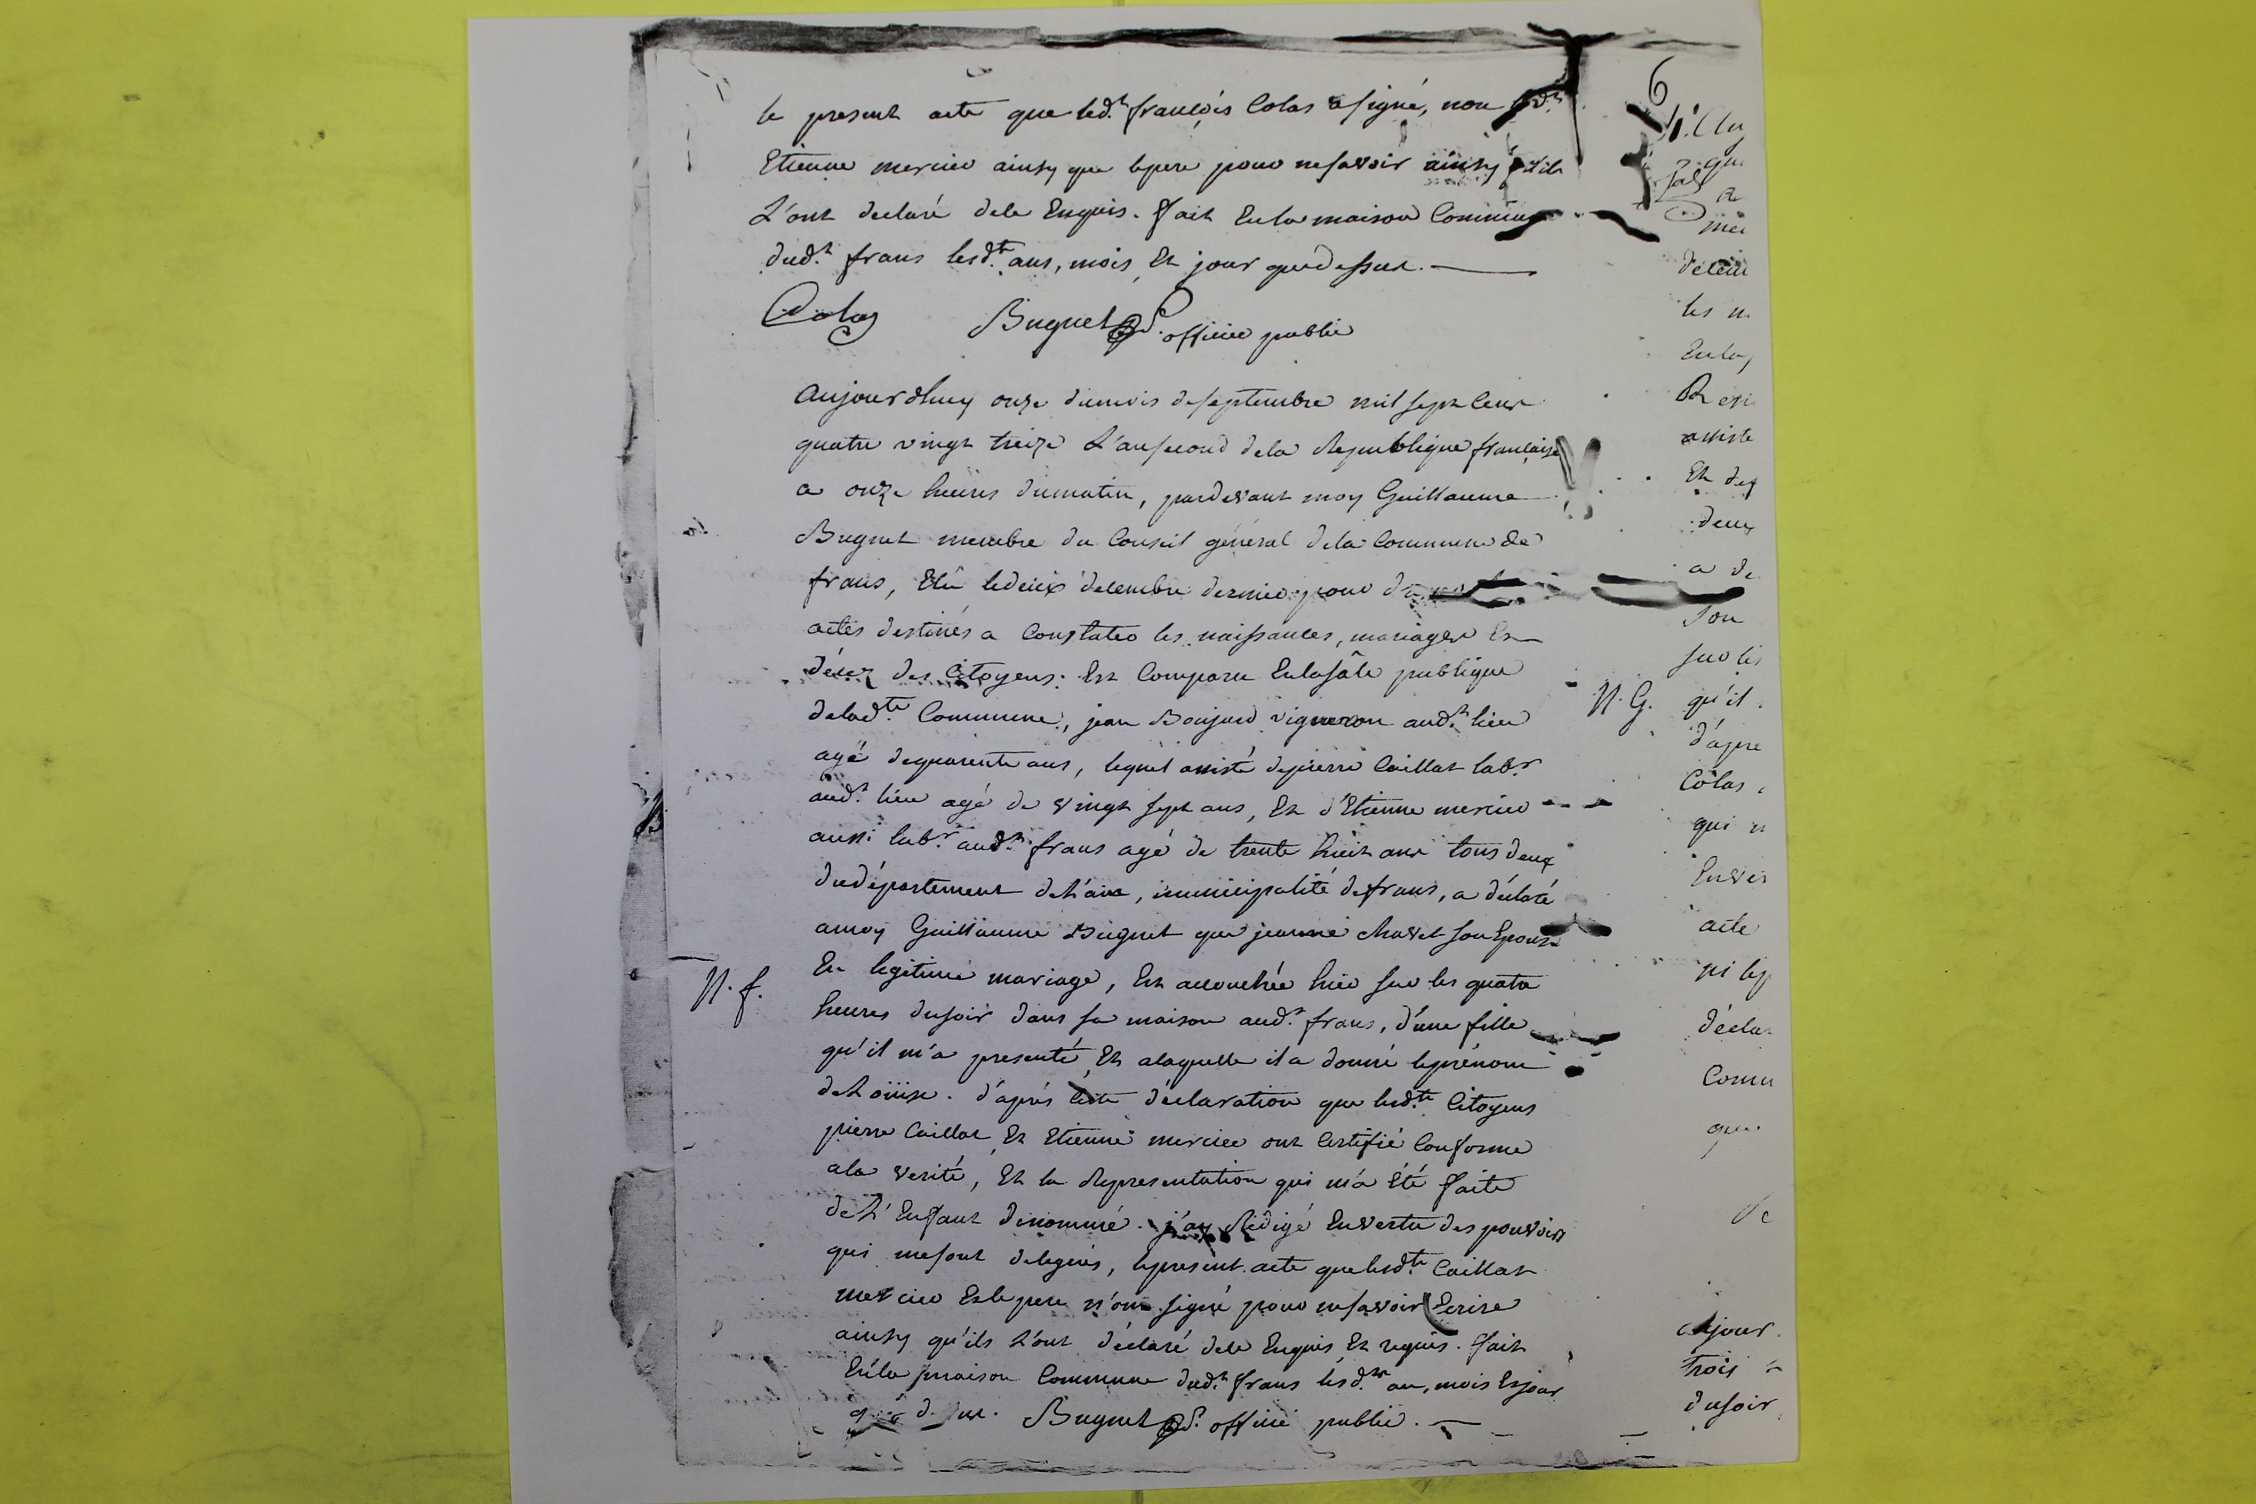 6
le present acte que led.t françois Colas a signé, non led.t
Etienne mercier ainsy que le pere pour ne savoir ainsy qu'ils
L'ont declaré de le Enquis. fait En la maison Commune
dud.t frans lesd.ts ans, mois Et jour que dessus.
Colas Buguet officier public
aujourdhuy onze du mois de septembre mil sept Cent
quatre vingt treize L'an second de la Republique française
a onze heures du matin, pardevant moy Guillaume
Buguet membre du Conseil général de la Commune de
frans, Elû le deux decembre dernier pour
actes destinés a Constater les naissances, mariages Et
décès des Citoyens. Est Comparu En la sâle publique
de lad.te Commune, jean Boujard vigneron aud.t lieu
agé de quarente ans, lequel assisté de pierre Caillat lab.r
aud.t lieu agé de vingt sept ans, Et d'Etienne mercier
aussi lab.r aud.t frans agé de trente huit ans tous deux
du département de L'ain, municipalité de frans, a déclaré
a moy Guillaume Buguet que jeanne Chavet son Epouse
N. f.
En legitime mariage, Est accouchée hier sur les quatre
heures du soir dans sa maison aud.t frans, d'une fille
qu'il m'a presenté, Et a laquelle il a donné le prénom
de Loüise. d'après Cette déclaration que lesd.ts Citoyens
pierre Caillat Et Etienne mercier ont Certifié Conforme
a la verité, Et la Representation qui m'a Eté faite
de L'Enfant dénommé. j'ay Rédigé En vertu des pouvoirs
qui me sont delegués, le present acte que lesd.ts Caillat
mercier Et le pere n'ont signé pour ne savoir Ecrire
ainsy qu'ils L'ont déclaré de le Enquis Et requis. fait
En la maison Commune dud.t frans lesd.ts an, mois Et jour
que dessus. Buguet officier public.
les
assiste
Et
deux
a de
son
N. G. qu'il
Colas
qui
acte
trois
du soir